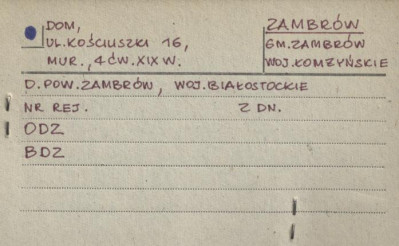 DOM,
UL. KOŚCIUSZKI 16,
MUR., 4 ĆW. XIX W.
ZAMBRÓW
GM. ZAMBRÓW
WOJ. ŁOMŻYŃSKIE
D. POW. ZAMBRÓW, WOJ. BIAŁOSTOCKIE
NR REJ. Z DN.
ODZ
BDZ